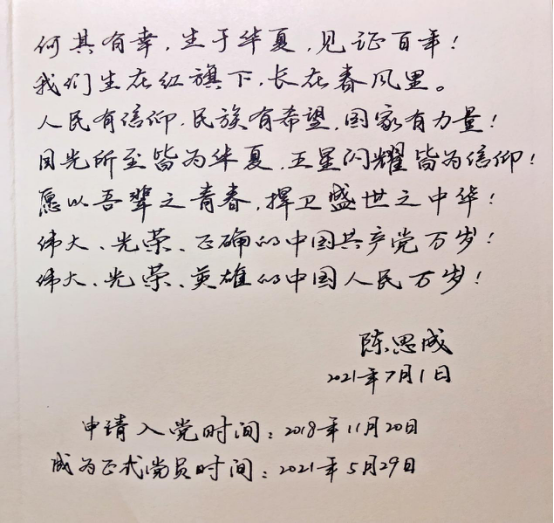 何其有幸，生于华夏，见证百年！
我们生在红旗下，长在春风里。
人民有信仰，民族有希望，国家有力量！
目光所至皆为华夏，五星闪耀皆为信仰！
愿以吾辈之青春，捍卫盛世之中华！
伟大、光荣、正确的中国共产党万岁！
伟大、光荣、英雄的中国人民万岁！
陈思成
2021年7月1日
申请入党时间：2018年11月20日
成为正式党员时间：2021年5月29日